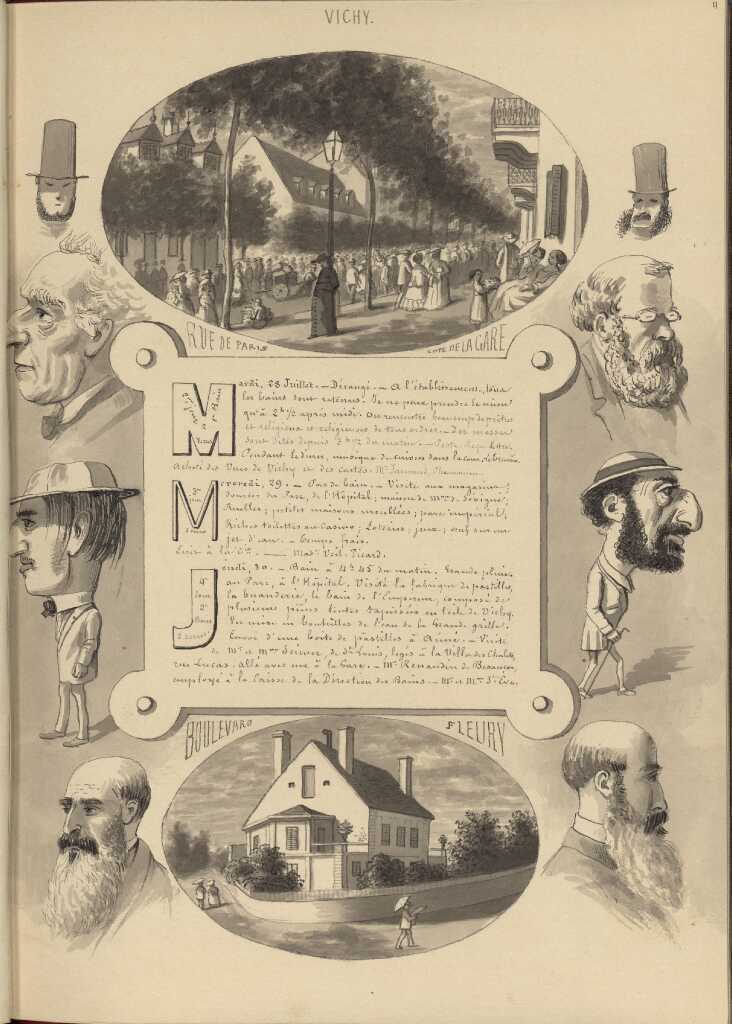 VICHY.
RUE DE PARIS
COTÉ DE LA GARE
Mardi, 28 Juillet. — Dérangé. — A l'établissement, tous
les bains sont retenus. Je ne peux prendre le mien
qu'à 2h 1/2 après midi. On rencontre beaucoup de prêtres
et religieux et religieuses de tous ordres. — Des messes
sont dites depuis du matin. — Poste. Reçu lettre.
Pendant le dîner, musique de suisses dans la cour,
Achète des Vues de Vichy et des cartes.
Mercredi, 29. — Pas de bain. — Visite aux magasins;
sources du Parc, de l'Hôpital; maison de Mme de Sévigné;
Ruelles; petites maisons meublées; parc impérial;
Riches toilettes au Casino; Loteries; jeux; œuf sur un
jet d'eau. — Temps frais.
Ecris à la Cie. — Mad. Veil-Picard.
Jeudi, 30. — Bain à 4h 45 du matin. Grande pluie,
au Parc, à l'Hôpital. Visité la fabrique de pastilles,
la buanderie, le bain de l'Empereur, composé de
plusieurs pièces toutes tapissées en toile de Vichy.
Vu mise en bouteilles de l'eau de la Grande grille.
Envoi d'une boîte de pastilles à Aimé. — Visite
de Mr et Mme de St Louis, logés à la Villa des Chalets,
rue Lucas. Allé avec eux à la Gare. — Mr Renaudin de Besançon,
employé à la Caisse de la Direction des Bains. — Mr et Mme St Eve.
BOULEVARD
FLEURY